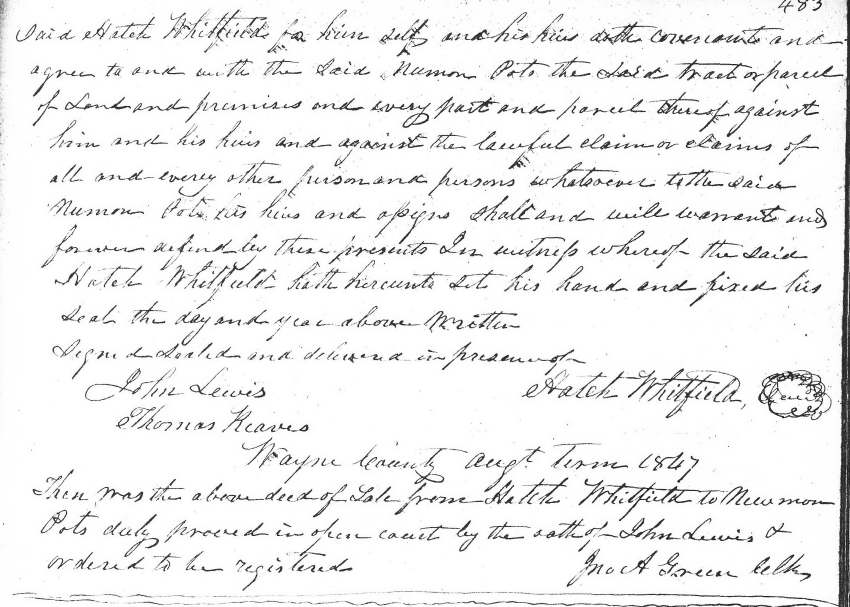 483
Said Hatch Whitfield for him self and his hirs doth covenant and
agree to and with the Said Numon Pots the Said tract or parcel
of Land and premises and every part and parcel thereof against
him and his hirs and against the lawful claim or claims of
all and every other person and persons whatsoever to the said
Numon Pots his hirs and assigns shall and will warrant and
forever defend by these presents In witness whereof the said
Hatch Whitfield hath hereunto set his hand and fixed his
Seal the day and year above Written
Signed Sealed and delivered in presence of
John Lewis Hatch Whitfield,
Thomas Reaves
Wayne County Augt. term 1847
Then was the above deed of Sale from Hatch Whitfield to Newmon
Pots duly proved in open court by the oath of John Lewis &
ordered to be registered Jno A Green Clk